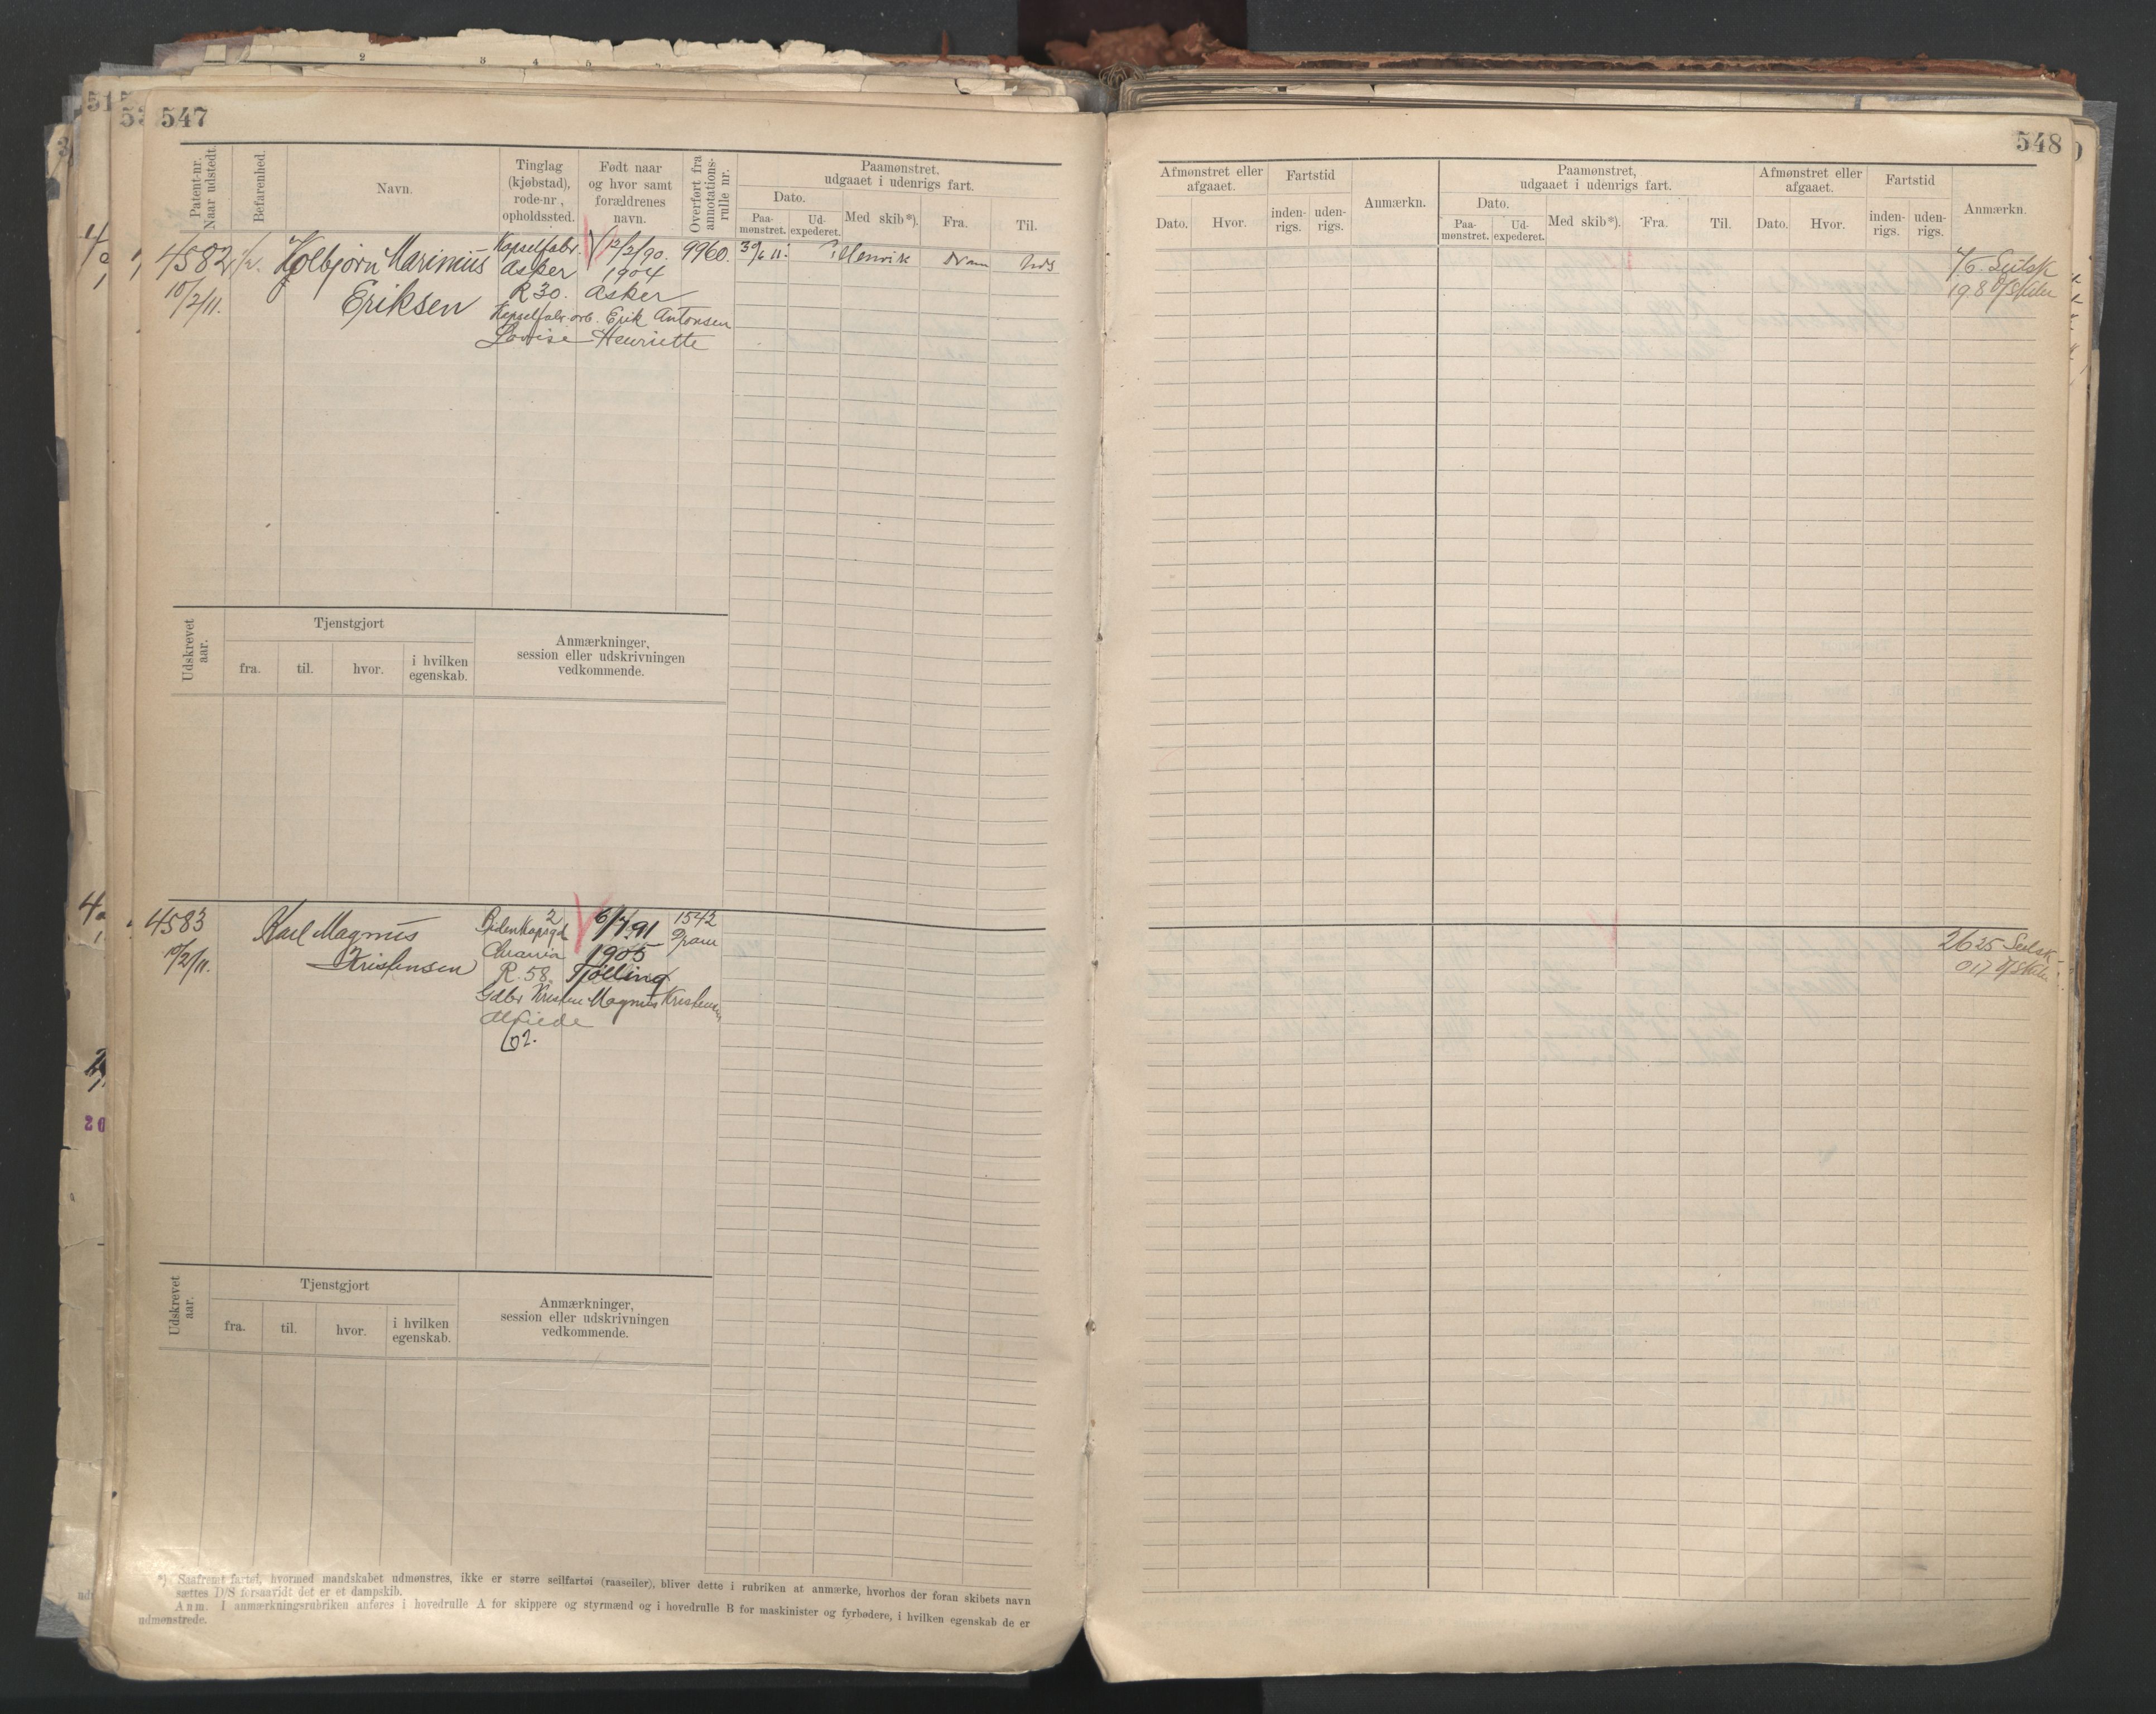 547
Patent-nr. Naar udstedt.
Befarenhed.
Navn.
Tinglag (kjøbstad), rode-nr, opholdssted.
Født naar og hvor samt forældrenes navn.
Overført fra annotations-rulle nr.
Paamønstret, udgaaet i udenrigs fart.
Dato.
Paa-mønstret.
Ud-expederet.
Med skib*).
Fra.
Til.
4582
Kolbjørn Marinius
Eriksen
10/2/11.
Kapselfabr.
Asker
R 30.
12/2/90.
1904
Asker
9960.
Kapselfabr. arb. Erik Antonsen
Lovise Henriette
30/6 11.
Dram
Uds
Udskrevet aar.
Tjenstgjort
fra.
til.
hvor.
i hvilken egenskab.
Anmærkninger, session eller udskrivningen vedkommende.
4583
10/2/11.
Karl Magnus
Kristensen
2
R. 58.
6/7.91
1905
Tjølling
1542
Dram
Gdbr Kristen Magnus Kristensen
Udskrevet aar.
Tjenstgjort
fra.
til.
hvor.
i hvilken egenskab.
Anmærkninger, session eller udskrivningen vedkommende.
*) Saafremt fartøi, hvormed mandskabet udmønstres, ikke er større seilfartøi (raaseiler), bliver dette i rubriken at anmærke, hvorhos der foran skibets navn
sættes D/S forsaavidt det er et dampskib.
Anm. I anmærkningsrubriken anføres i hovedrulle A for skippere og styrmænd og i hovedrulle B for maskinister og fyrbødere, i hvilken egenskab de er
udmønstrede.
548
Afmønstret eller afgaaet.
Fartstid
Anmærkn.
Paamønstret, udgaaet i udenrigs fart.
Afmønstret eller afgaaet.
Fartstid
Anmærkn.
Dato.
Hvor.
inden-rigs.
uden-rigs.
Dato.
Paa-mønstret.
Ud-expederet.
Med skib*).
Fra.
Til.
Dato.
Hvor.
inden-rigs.
uden-rigs.
198
2625
017